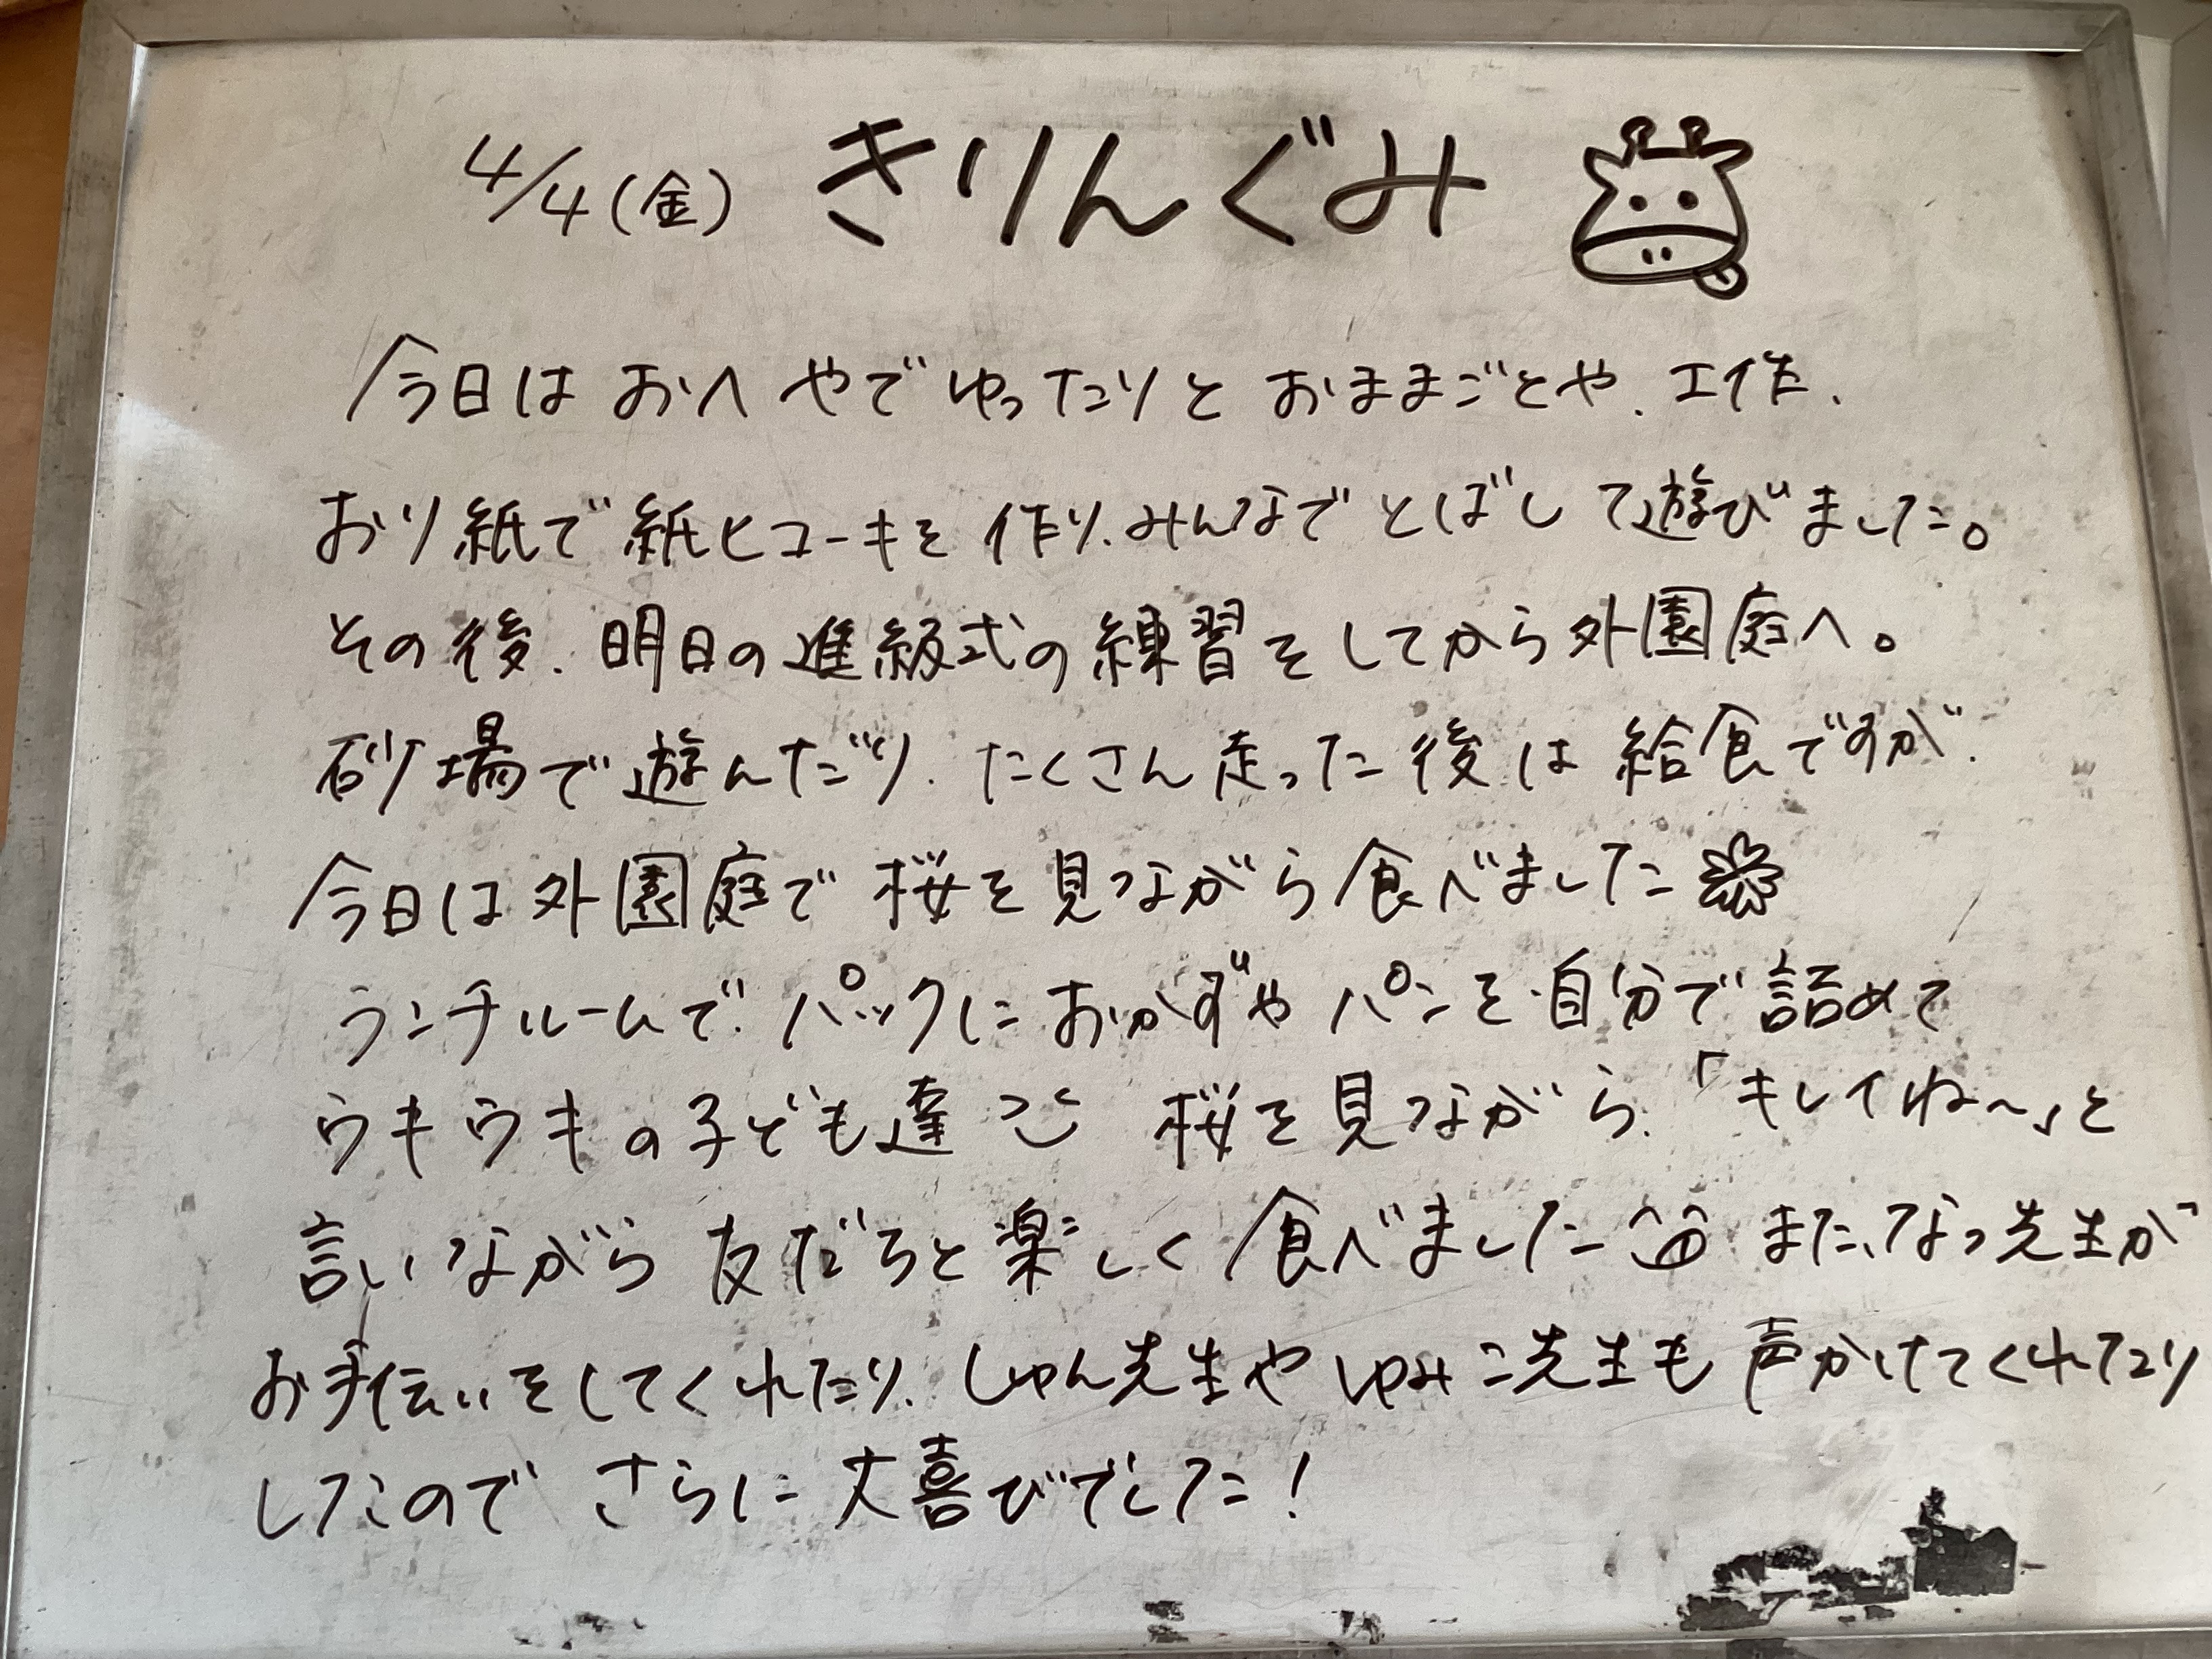 4/4(金) きりんぐみ
今日は おへやで ゆったりと おままごとや、工作、
おり紙で 紙ヒコーキを 作り、みんなで とばして遊びました。
その後、明日の進級式の練習をしてから外園庭へ。
砂場で遊んだり、たくさん走った後は給食ですが、
今日は外園庭で 桜を見ながら食べました
ランチルームで、パックに おかずや パンを自分で詰めて
ウキウキの子ども達 桜を見ながら、「キレイね〜」と
言いながら 友だちと楽しく食べました また、なつ先生が
お手伝いをしてくれたり、しゅん先生や ゆみこ先生も 声かけてくれたり
したので さらに大喜びでした!